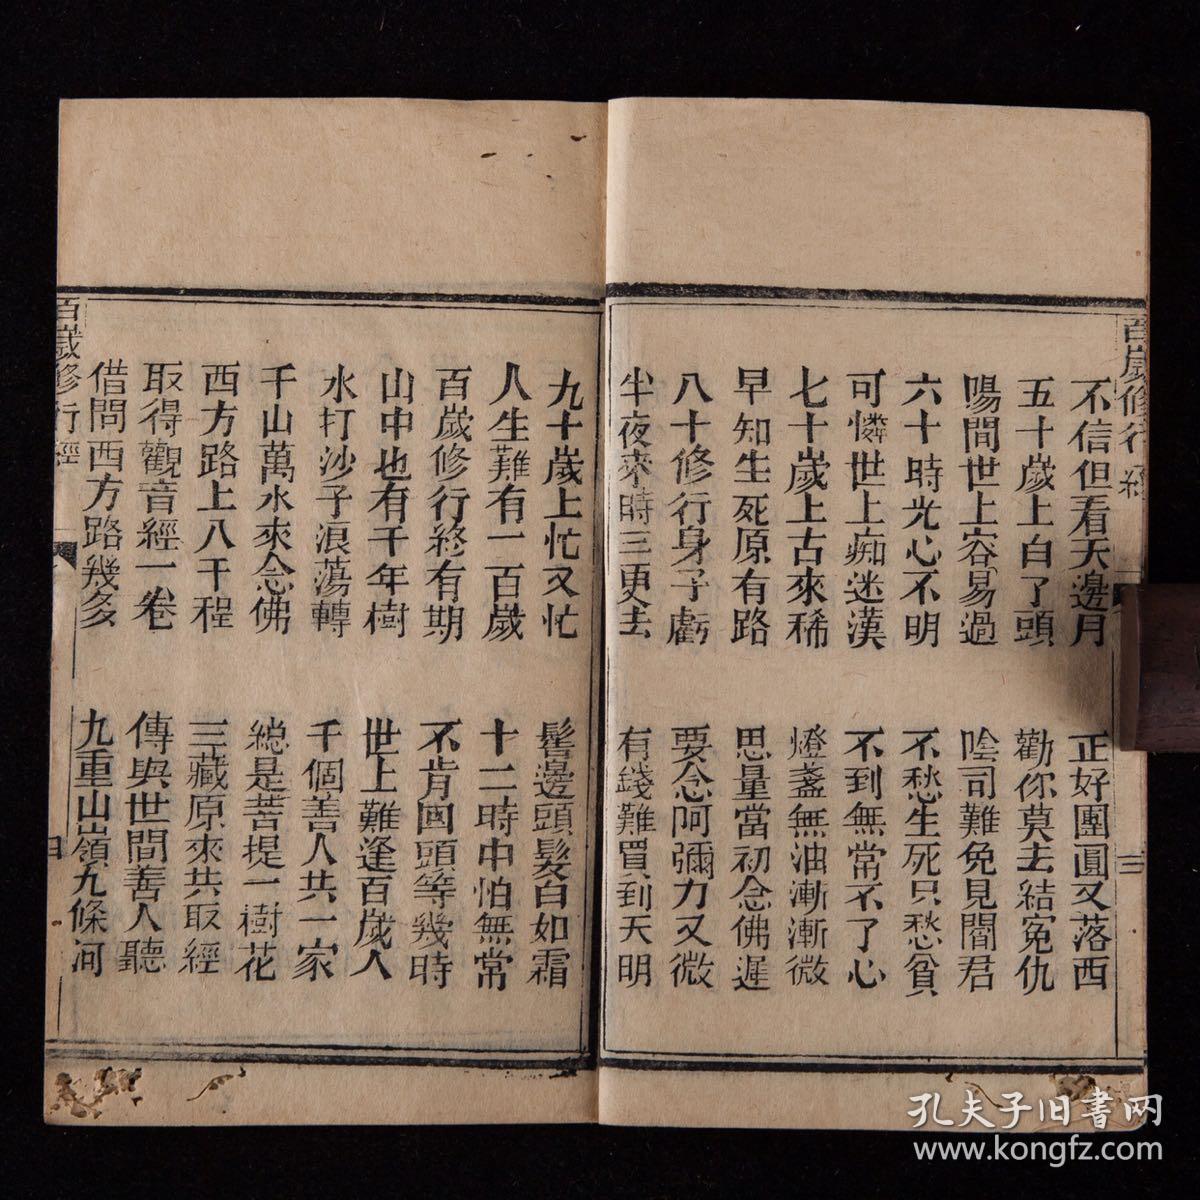 百歲修行經
三
不信但看天邊月　正好團圓又落西
五十歲上白了頭　勸你莫去結冤仇
陽間世上容易過　陰司難免見閻君
六十時光心不明　不愁生死只愁貧
可憐世上痴迷漢　不到無常不了心
七十歲上古來稀　燈盞無油漸漸微
早知生死原有路　思量當初念佛遲
八十修行身子虧　要念阿彌力又微
半夜來時三更去　有錢難買到天明
九十歲上忙又忙　髩邊頭髮白如霜
人生難有一百歲　十二時中怕無常
百歲修行終有期　不肯回頭等幾時
山中也有千年樹　世上難逢百歲人
水打沙子浪蕩轉　千個善人共一家
千山萬水來念佛　總是菩提一樹花
西方路上八千程　三藏原來共取經
取得觀音經一卷　傳與世間善人聽
借問西方路幾多　九重山嶺九條河
百歲修行經
四
孔夫子旧書网
www.kongfz.com